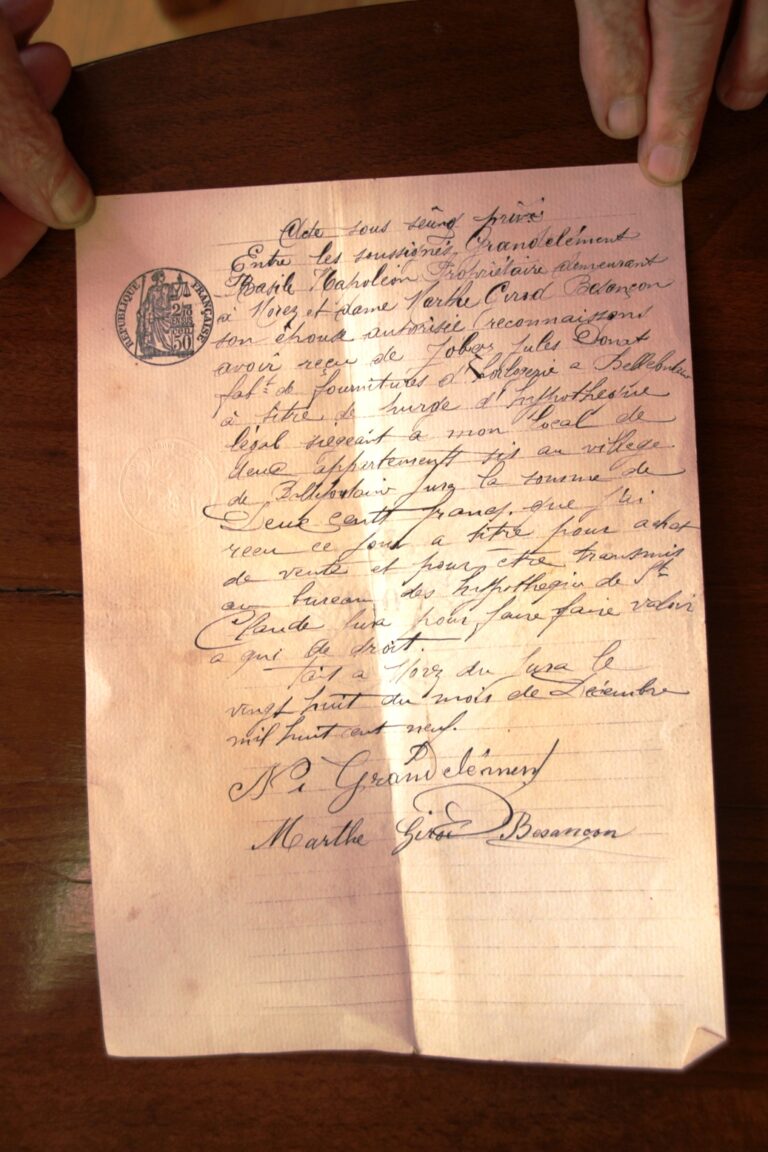 Acte sous seing privé
Entre les soussignés, Grandclément
Basile Napoléon Propriétaire demeurant
a Morez et dame Marthe Girod Besançon
son épouse autorisée reconnaissons
avoir reçu de Jobez Jules Donat
fabt de fournitures d'horlogerie a Bellefontaine
à titre de purge d'hypothèque
légal siégeant a mon local de
deux appartements sis au village
de Bellefontaine Jura la somme de
Deux Cents francs. que j'ai
reçu ce jour a titre pour achat
de vente et pour être transmis
au bureau des hypothèques de St
Claude Jura pour faire faire valoir
a qui de droit.
Fait a Morez du Jura le
vingt huit du mois de Décembre
mil huit cent neuf.
Grandclément
Marthe Girod Besançon
RÉPUBLIQUE FRANÇAISE
50